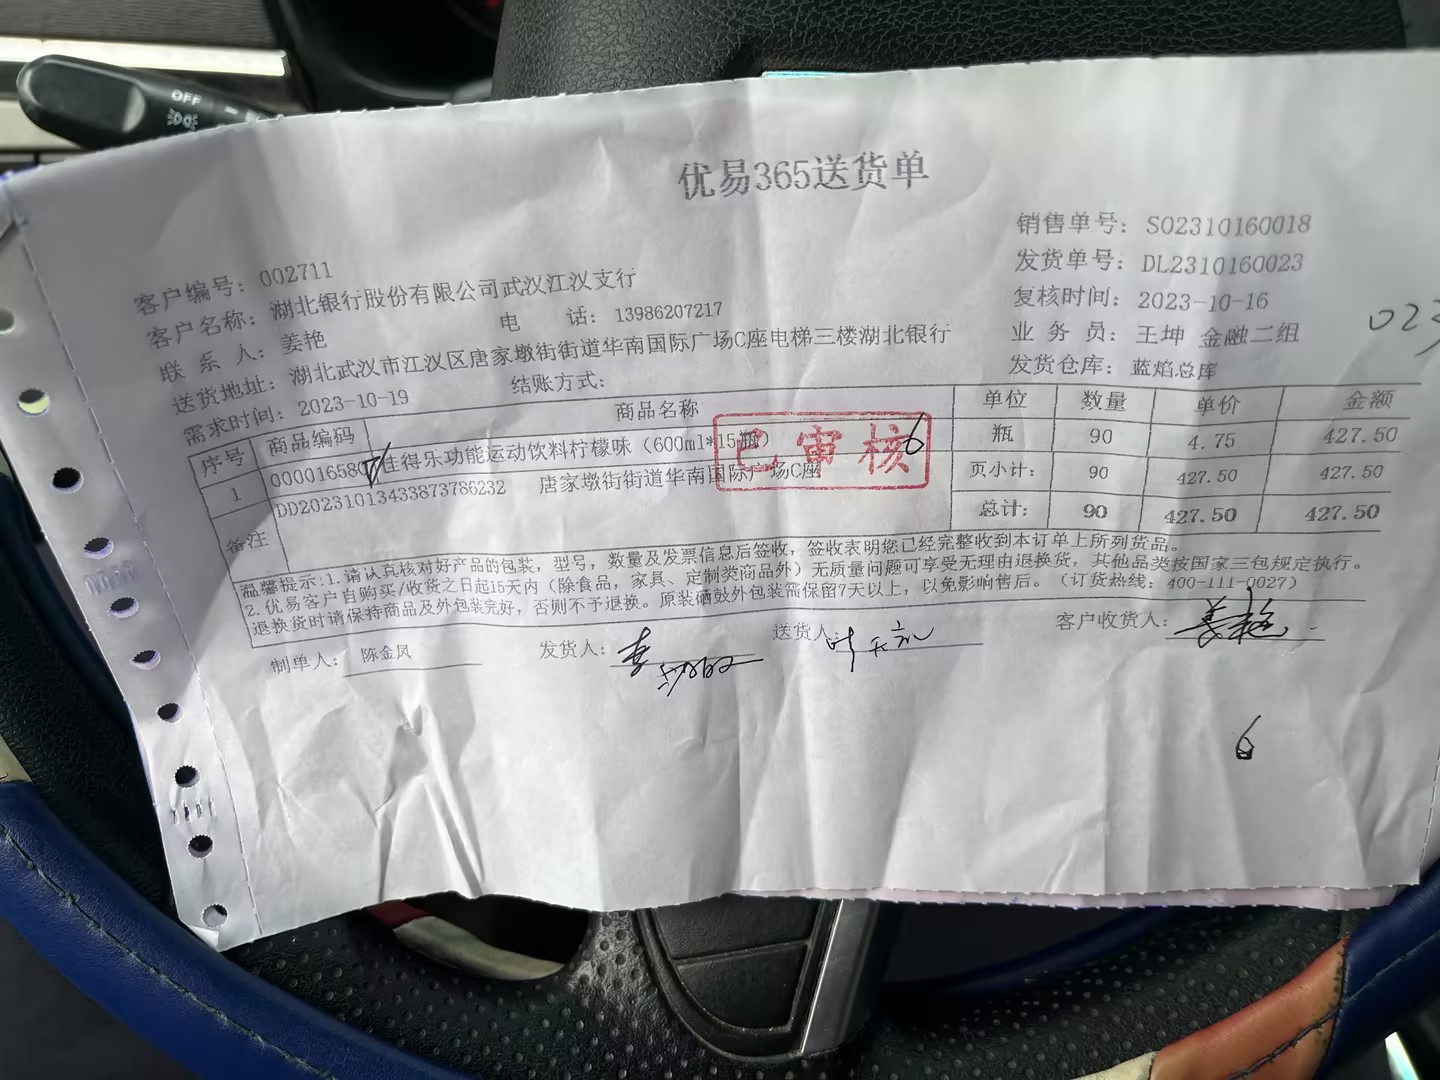 OFF
优易365送货单
客户编号: 002711
销售单号: SO2310160018
客户名称: 湖北银行股份有限公司武汉江汉支行
发货单号: DL2310160023
联系人: 姜艳 电话: 13986207217
复核时间: 2023-10-16
送货地址: 湖北武汉市江汉区唐家墩街街道华南国际广场C座电梯三楼湖北银行
业务员: 王坤 金融二组
需求时间: 2023-10-19 结账方式:
发货仓库: 蓝焰总库
023
序号 商品编码 商品名称 单位 数量 单价 金额
1 000016580 佳得乐功能运动饮料柠檬味（600ml*15瓶） 瓶 90 4.75 427.50
已审核
6
备注 DD20231013433873786232 唐家墩街街道华南国际广场C座 页小计: 90 427.50 427.50
总计: 90 427.50 427.50
温馨提示:1.请认真核对好产品的包装，型号，数量及发票信息后签收，签收表明您已经完整收到本订单上所列货品。
2.优易客户自购买/收货之日起15天内（除食品，家具、定制类商品外）无质量问题可享受无理由退换货，其他品类按国家三包规定执行。
退换货时请保持商品及外包装完好，否则不予退换。原装硒鼓外包装需保留7天以上，以免影响售后。（订货热线: 400-111-0027）
制单人: 陈金凤 发货人: 李 送货人: 叶 客户收货人: 姜艳
6